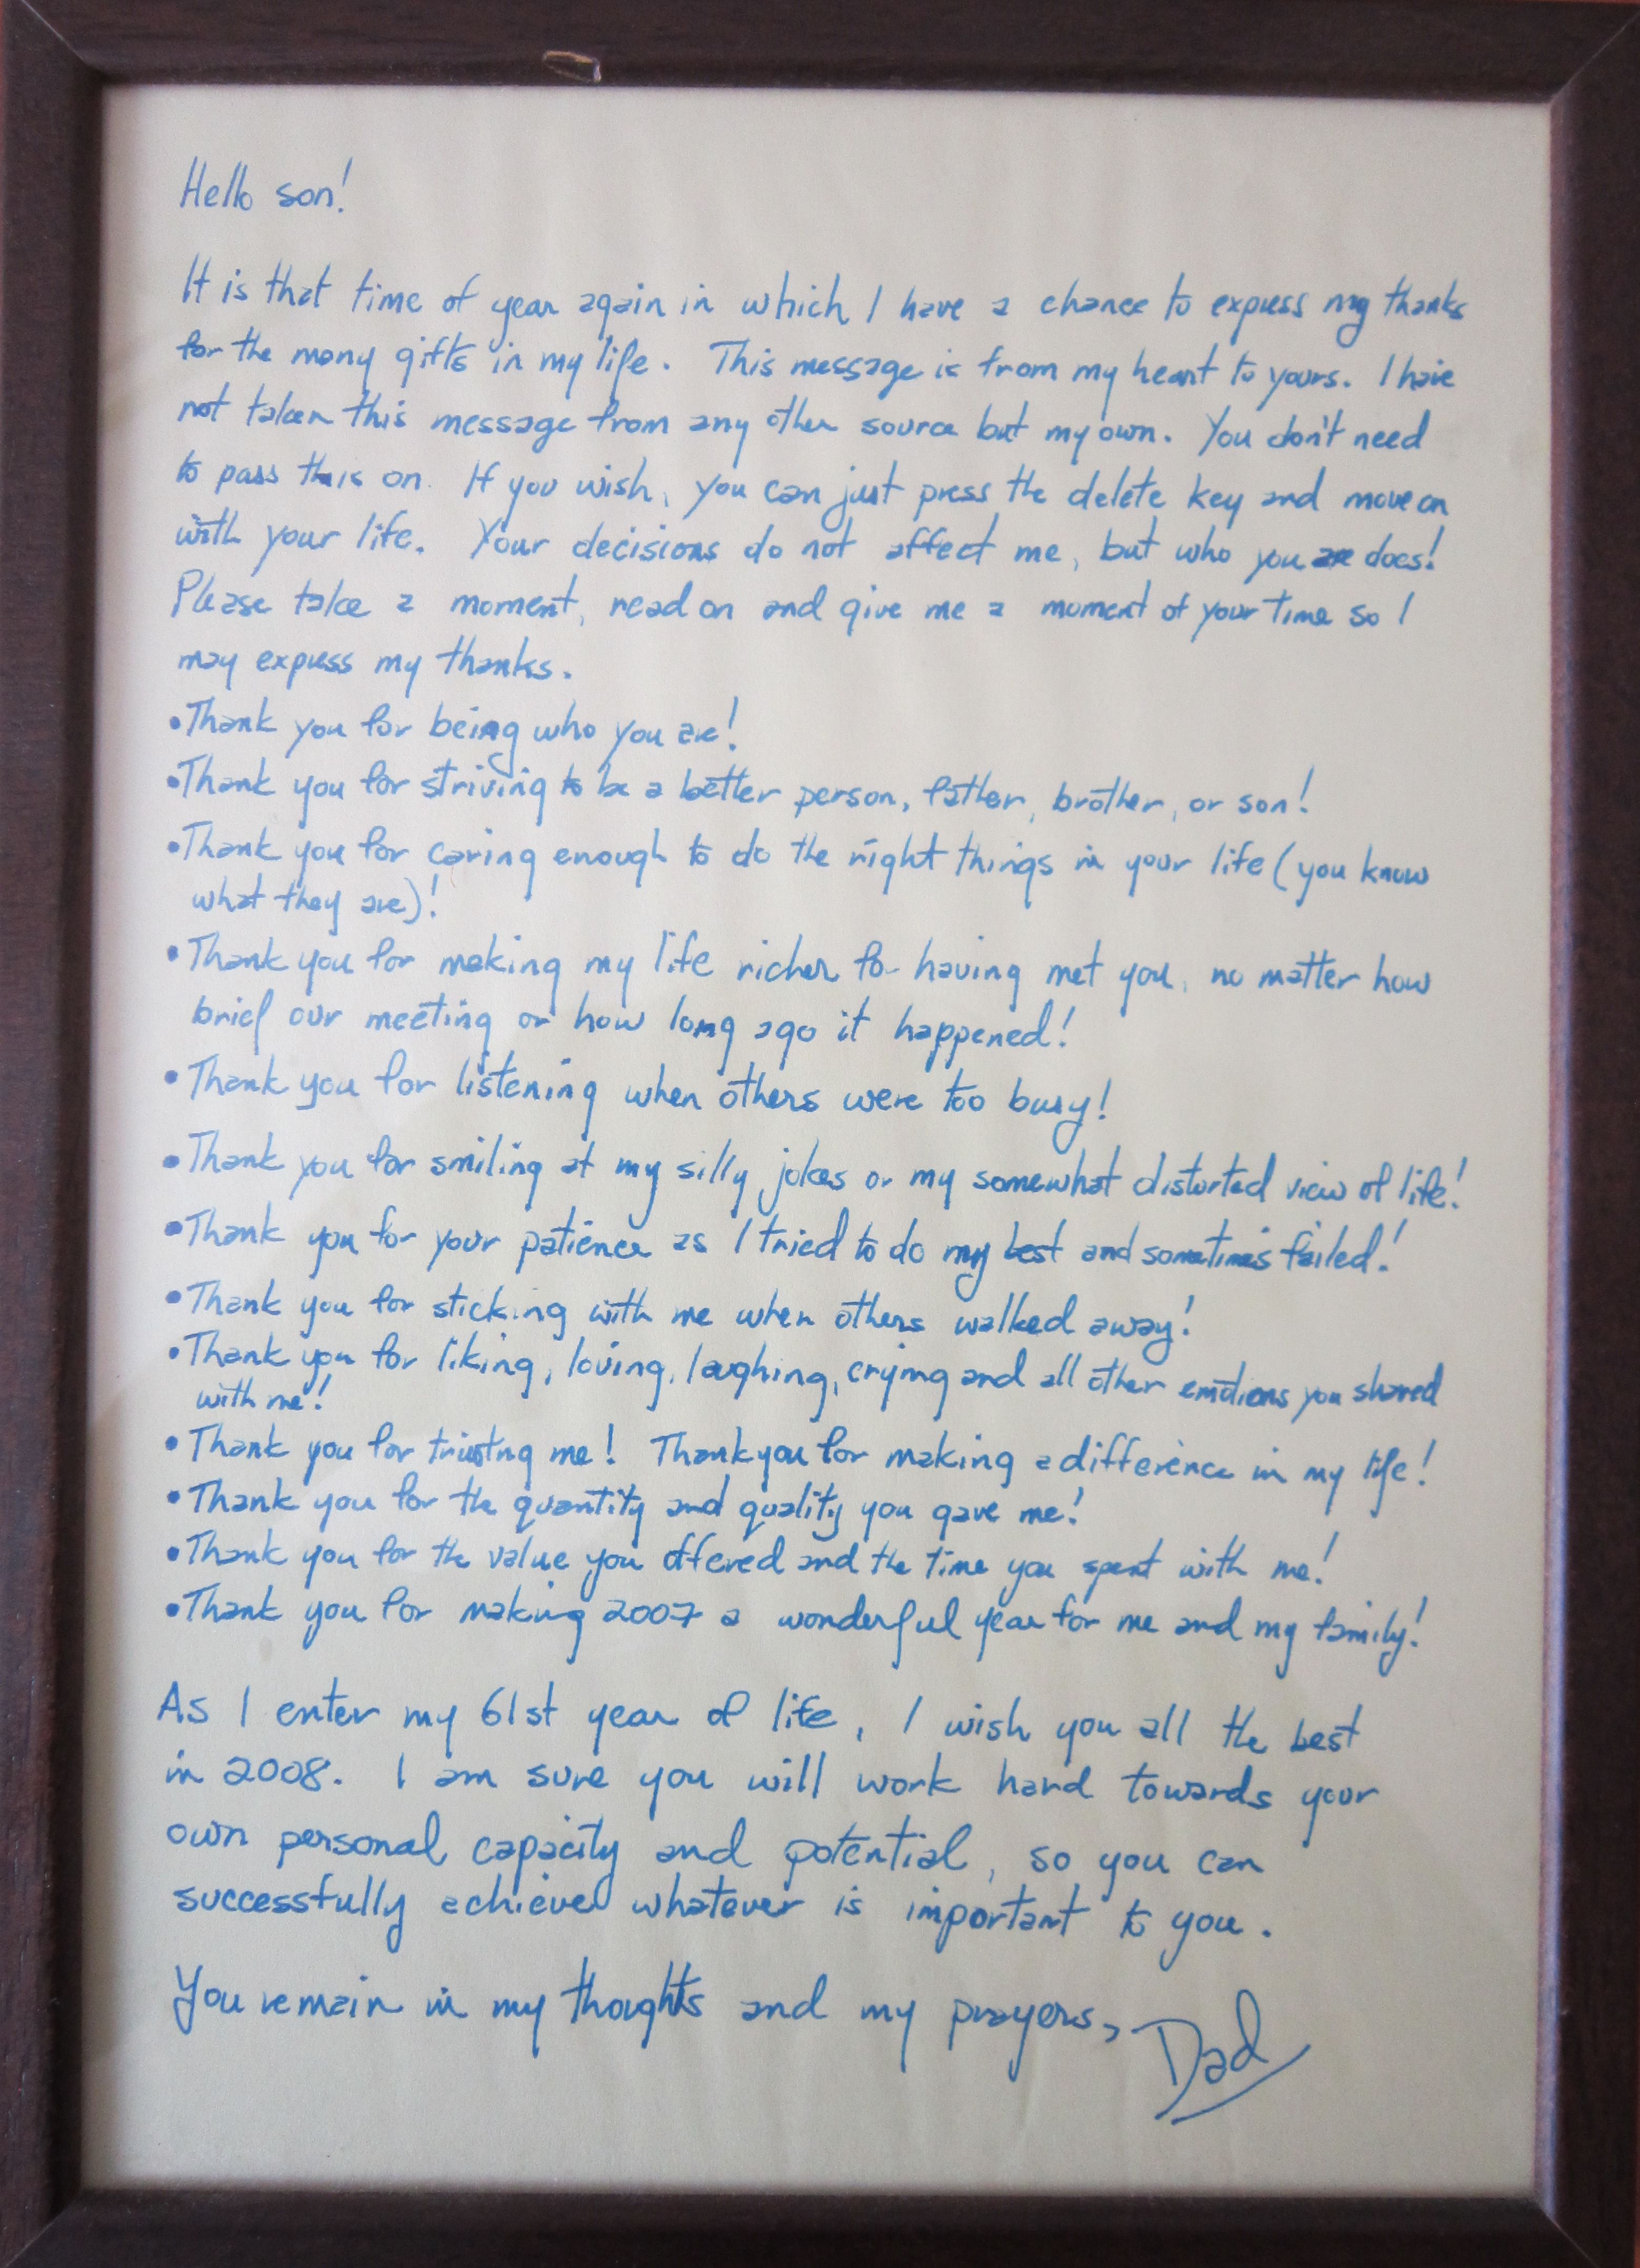 Hello son!
It is that time of year again in which I have a chance to express my thanks
for the many gifts in my life. This message is from my heart to yours. I have
not taken this message from any other source but my own. You don't need
to pass this on. If you wish, you can just press the delete key and move on
with your life. Your decisions do not affect me, but who you are does!
Please take a moment, read on and give me a moment of your time so I
may express my thanks.
•Thank you for being who you are!
•Thank you for striving to be a better person, father, brother, or son!
•Thank you for caring enough to do the right things in your life (you know
what they are)!
•Thank you for making my life richer for having met you, no matter how
brief our meeting or how long ago it happened!
•Thank you for listening when others were too busy!
•Thank you for smiling at my silly jokes or my somewhat distorted view of life!
•Thank you for your patience as I tried to do my best and sometimes failed!
•Thank you for sticking with me when others walked away!
•Thank you for liking, loving, laughing, crying and all other emotions you shared
with me!
•Thank you for trusting me! Thank you for making a difference in my life!
•Thank you for the quantity and quality you gave me!
•Thank you for the value you offered and the time you spent with me!
•Thank you for making 2007 a wonderful year for me and my family!
As I enter my 61st year of life, I wish you all the best
in 2008. I am sure you will work hard towards your
own personal capacity and potential, so you can
successfully achieve whatever is important to you.
You remain in my thoughts and my prayers,
Dad